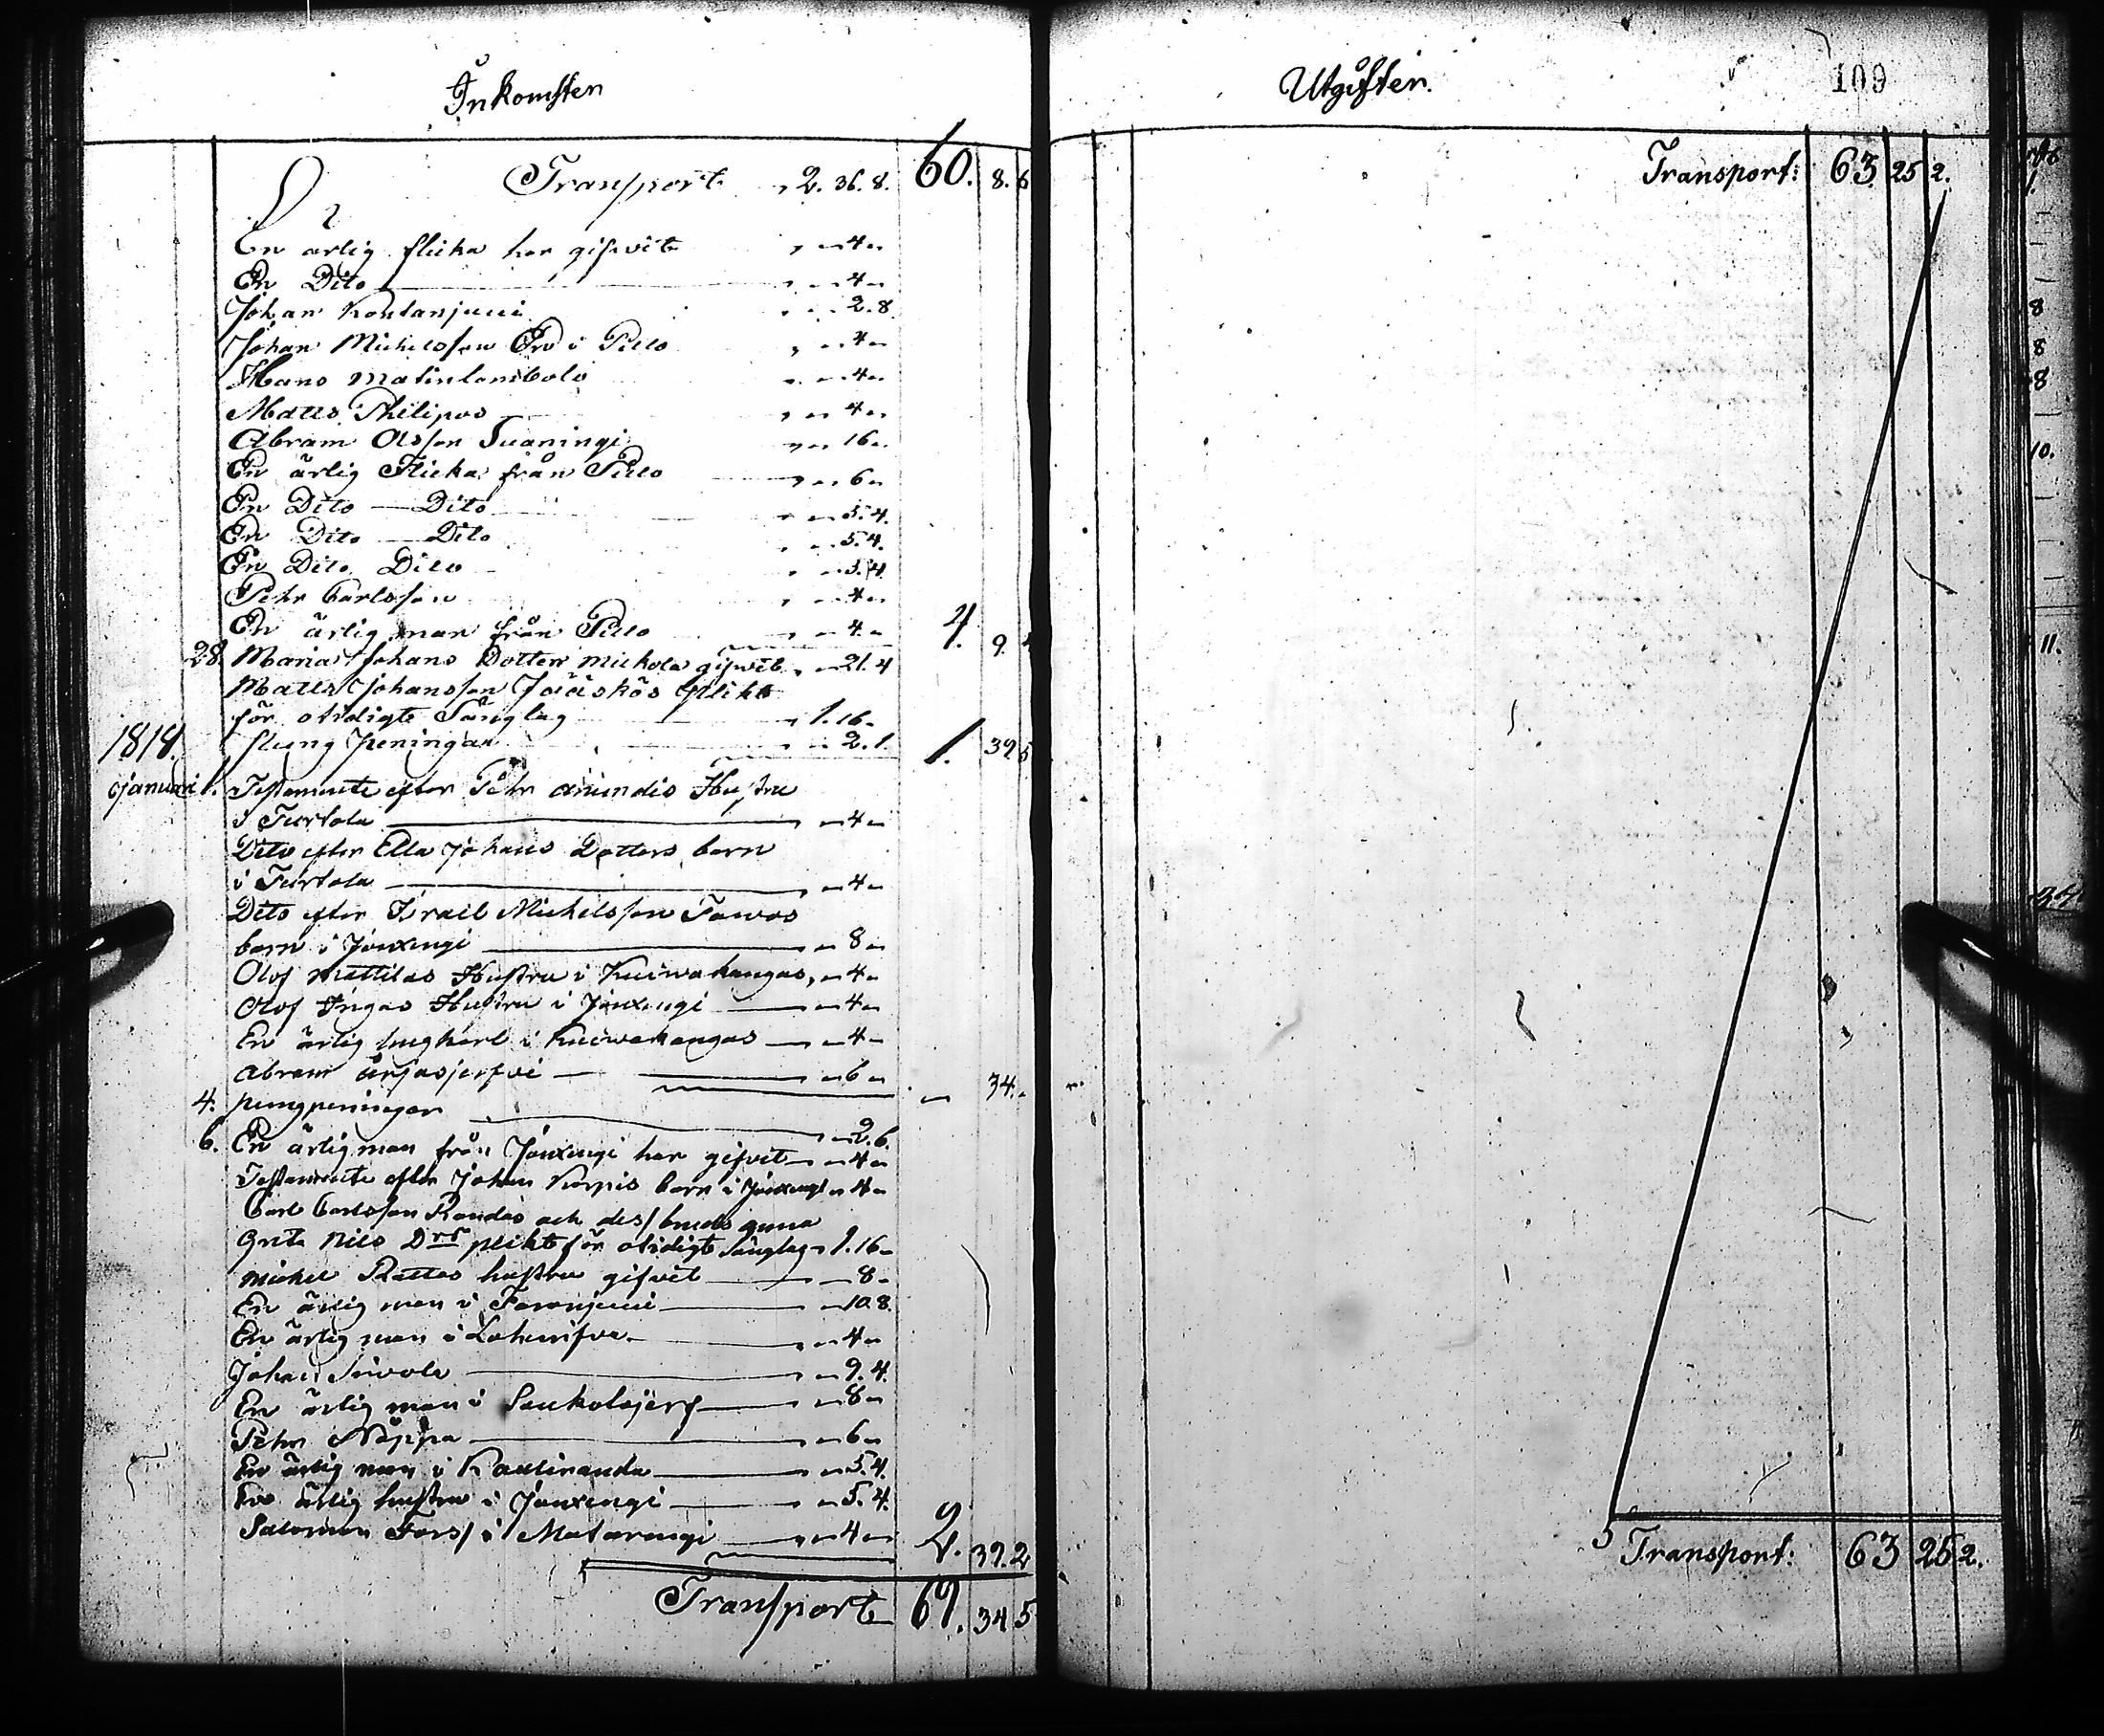 Inkomsten
Transport 2. 36. 8. 60. 8. 6
En ärlig flicka har gifvit 4
En Dito 4
Johan 2. 8.
Johan Michelsson i Pello 4
Hans 4
Matts Philipus 4
Abram Olsson Tuaningi 16
En ärlig Flicka från Pello 6
En Dito Dito 5. 4.
En Dito Dito 5. 4.
En Dito Dito 5. 4.
Pehr Carlsson 4
En ärlig man från Pello 4. 4. 9.
28. Maria Johans Dotter Mickola gifvit 21. 4
Matts Johansson Jääskös plikt
för otidigt Sänglag 1. 16
1818. pung peningar 2. 1. 1. 39 5
Januari 1. Testamente efter Pehr Hustru
i Turtola 4
Dito efter Ella Johans Dotters barn
i Turtola 4
Dito efter Israel Michelsson Tawos
barn i Jouxengi 8
Olof Mattilas Hustru i Kuiwakangas 4
Olof Hustru i Jouxengi 4
En ärlig ungkarl i Kuiwakangas 4
Abram ärjasjerfvi 6 34.
4. pungpeningar 2. 6.
6. En ärlig man från Jouxengi har gifvit 4
Testamente efter Johan barn i Jouxengi 4
Carl Carlsson Randas och dess
Greta Nils Drs plikt för otidigt Sänglag 1. 16
Michel Rattas hustru gifvit 8
En ärlig man i 10. 8.
En ärlig man i 4
Johan 9. 4.
En ärlig man i Soukolojerf 8
Pehr Näppa 6
En ärlig man i Rautiranda 5. 4.
En ärlig hustru i Jouxengi 5. 4.
Salomon Forss i Matarengi 4 2. 39. 2
Transport 67. 34 5
Utgiften.
109
Transport: 63 25 2.
Transport: 63 25 2.